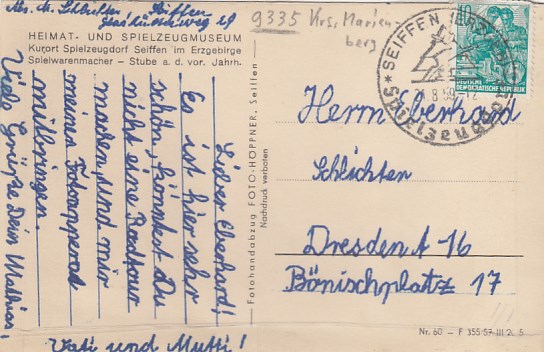 Abs. M. Schlichten Seiffen
9335 Krs. Marien-
berg
HEIMAT- UND SPIELZEUGMUSEUM
Kurort Spielzeugdorf Seiffen im Erzgebirge
Spielwarenmacher – Stube a. d. vor. Jahrh.
Lieber Eberhard!
Es ist hier sehr
schön, könntest Du
nicht eine Radtour
machen und mir
meinen Fotoapperat
mitbringen.
Viele Grüße Dein Mathias!
Vati und Mutti!
Fotohandabzug FOTO-HÖPFNER, Seiffen
Nachdruck verboten
SEIFFEN (ERZGEB)
8.59-12
Spielzeugdorf
10
DEUTSCHE
DEMOKRATISCHE REPUBLIK
Herrn Eberhard
Schlichten
Dresden A 16
Bönischplatz 17
Nr. 60 – F 355 57 III 2 5